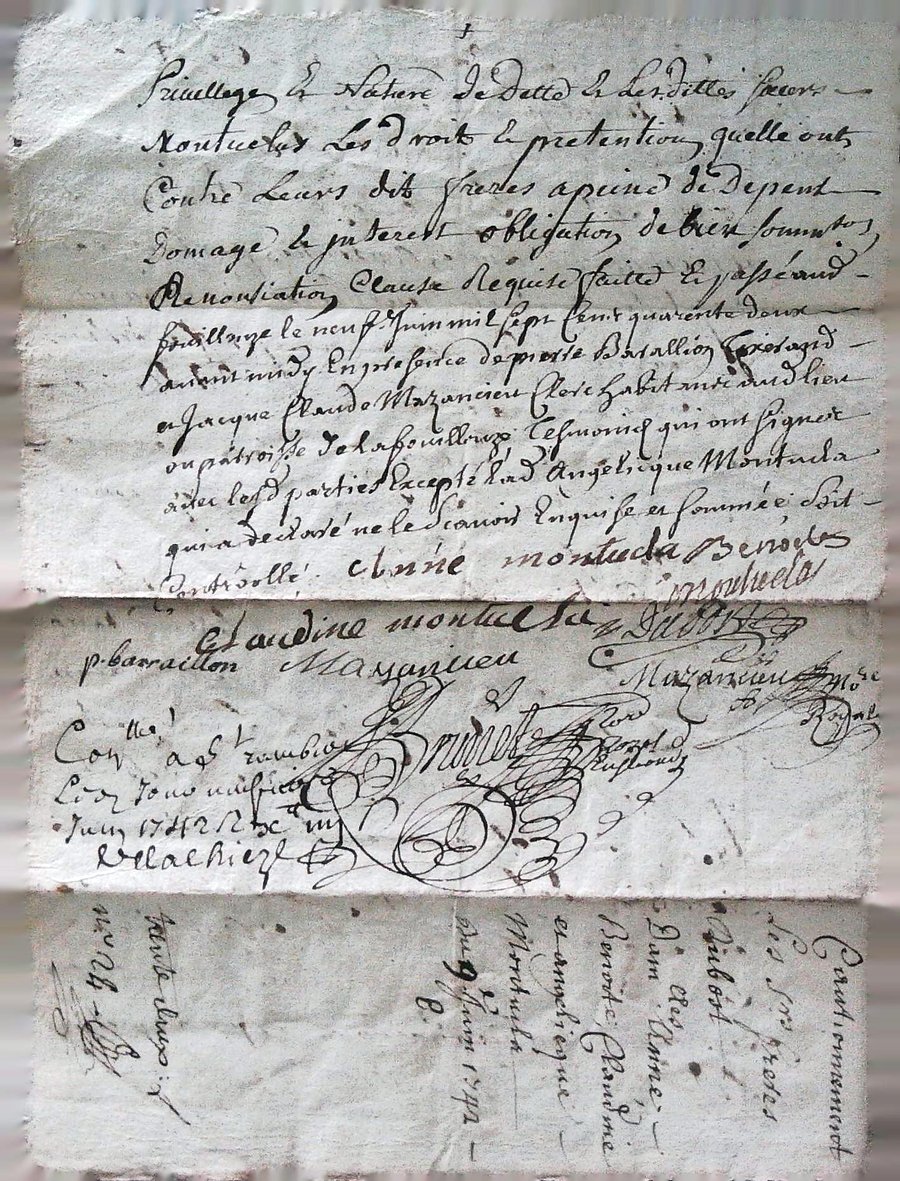 1
Priuillege Et Nature de Dette Et Lesdittes soeurs
Montuclas Les droits Et pretention quelle ont
Contre Leurs dit freres apeine de Depent
Domage Et jnterest obligation de bien
Renonsiation Clause Requise faitte Et passé aud
fouillouze le neuf Juin mil sept Cens quarente deux
auant midy En presence de pierre Barallion
et Jacque Claude Mazancieu Clerc habitans aud lieu
ou parroisse de Lafouillouze Tesmoins qui ont signer
avec lesd parties Excepté Lad Angelicque Montucla
qui a declaré ne le scavoir Enquise et sommée soit
Controollé. Anne montucla Benoite
montucla
Claudine montucla Dubost
p. barraillon Mazancieu Mazancieu No.re
Royal
Con.llé a St rambert
Juin 1742
Cautionnement
Les Srs freres
Dubost
Dam.lles Anne
Benoite, Claudine
et angelicque
Montucla
Du 9.e Juin 1742
8.
trente deux
n.o 24